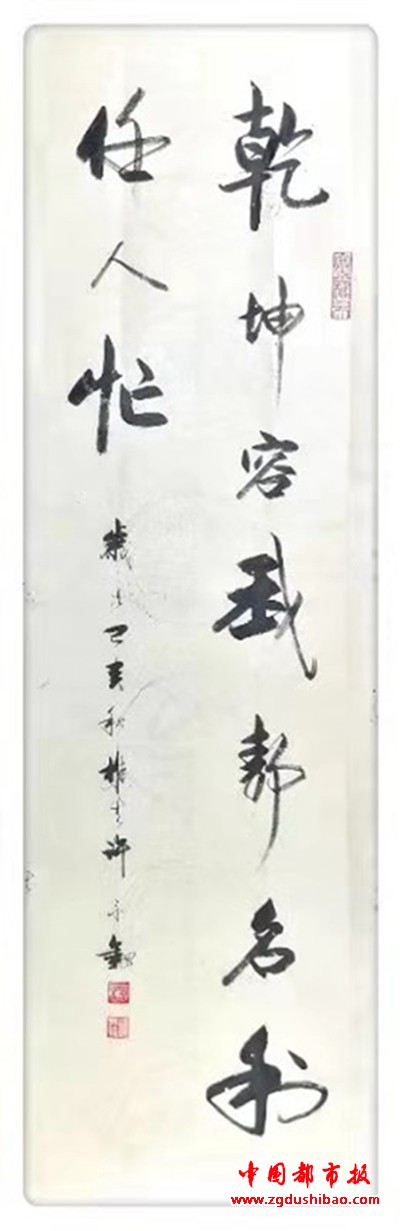 乾坤容我静名利
任人忙
歲在己亥秋 许
中国都市报
www.zgdushibao.com